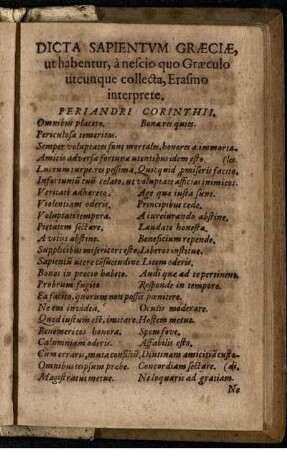 DICTA SAPIENTVM GRÆCIÆ,
ut habentur, à nescio quo Græculo
utcunque collecta, Erasmo
interprete.
PERIANDRI CORINTHII.
Omnibus placeto. Bona res quies.
Periculosa temeritas.
Semper voluptates sunt mortales, honores a. immorta.
Amicis adversa fortuna utentibus idem esto. (les.
Lucrum turpe res pessima. Quicquid promiseris facito.
Infortunium tuum celato, ut voluptate afficias inimicos.
Veritati adhæreto. Age quæ iusta sunt.
Violentiam oderis. Principibus cede.
Voluptati tempora. A iureiurando abstine.
Pietatem sectare. Laudato honesta.
A vitiis abstine. Beneficium rependo.
Supplicibus misericors esto. Liberos institue.
Sapientum utere consuetudine Litem oderis.
Bonos in precio habeto. Audi quæ ad te pertinent.
Probrum fugito. Responde in tempore.
Ea facito, quorum non possis pœnitere.
Ne cui invideas. Oculis moderare.
Quod iustum est, imitare. Hostem metue.
Benemeritos honora. Spem fove.
Calumniam oderis. Affabilis esto.
Cum erraris, muta consiliũ. Diutinam amicitiã custo-
Omnibus teipsum præbe. Concordiam sectare. (di.
Magistratus metue. Ne loquaris ad gratiam.
Ne